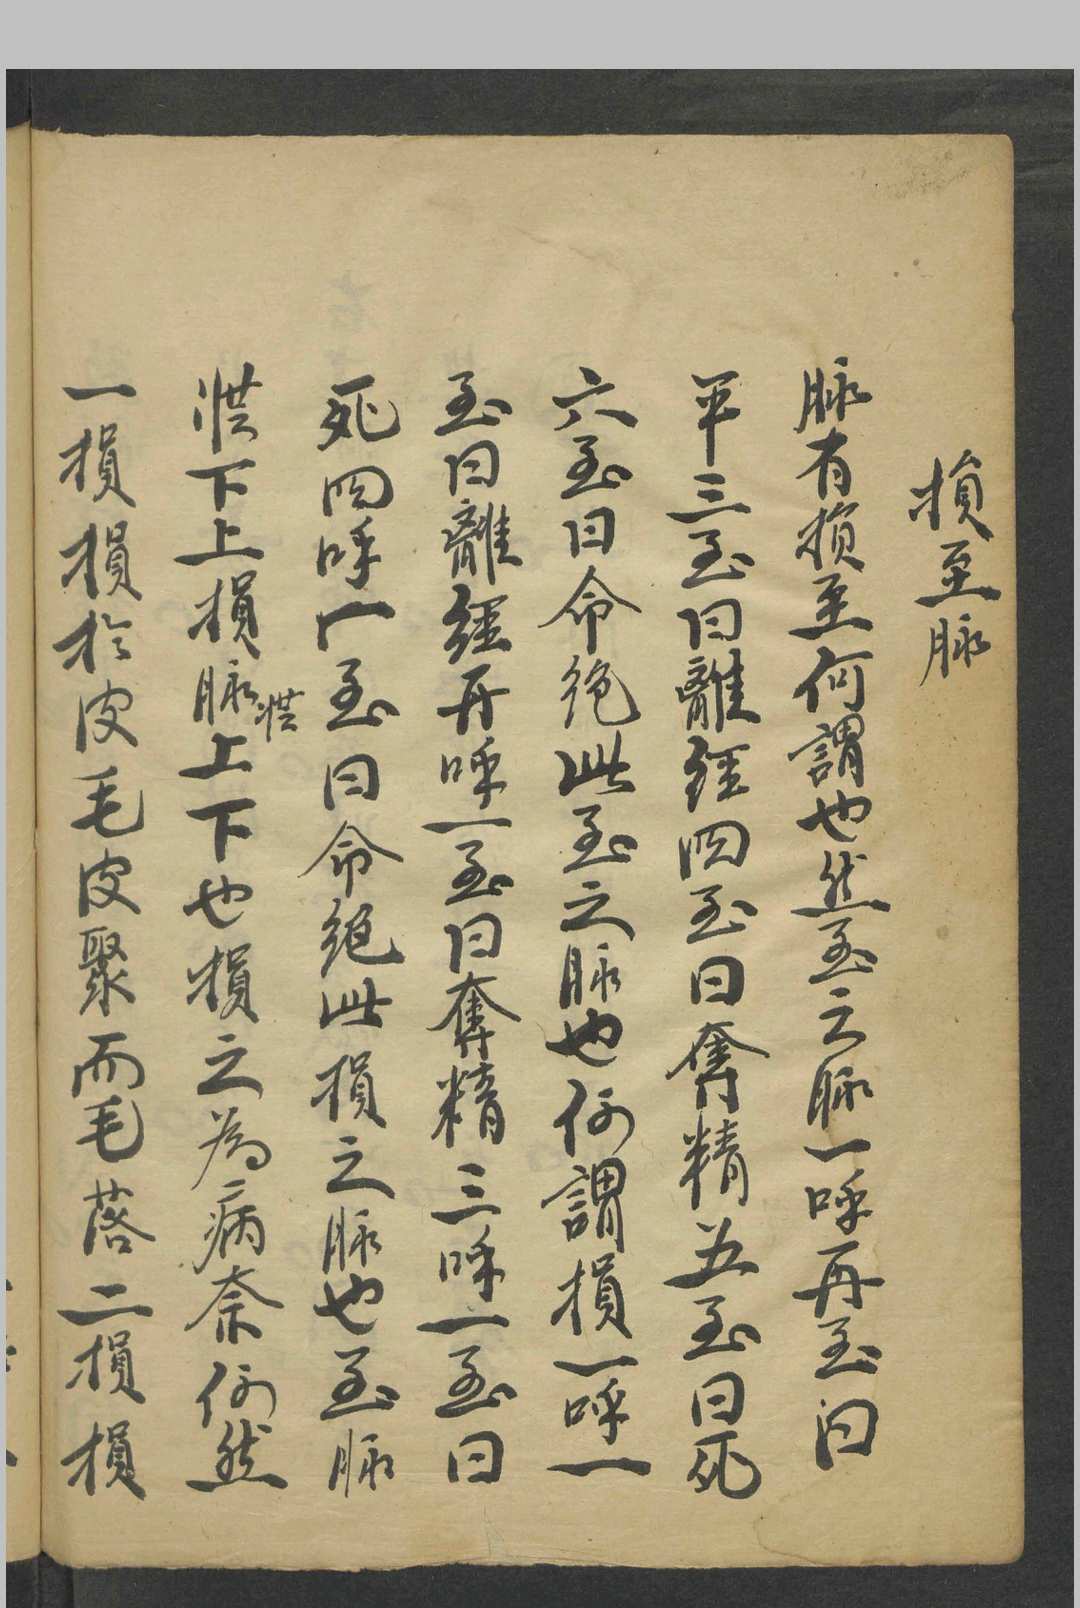 損至脉
脉有損至何謂也然至之脉一呼再至曰
平三至曰離經四至曰奪精五至曰死
六至曰命絶此至之脉也何謂損一呼一
至曰離經再呼一至曰奪精三呼一至曰
死四呼一至曰命絶此損之脉也至脉
從下上損脉從上下也損之為病奈何然
一損損於皮毛皮聚而毛落二損損